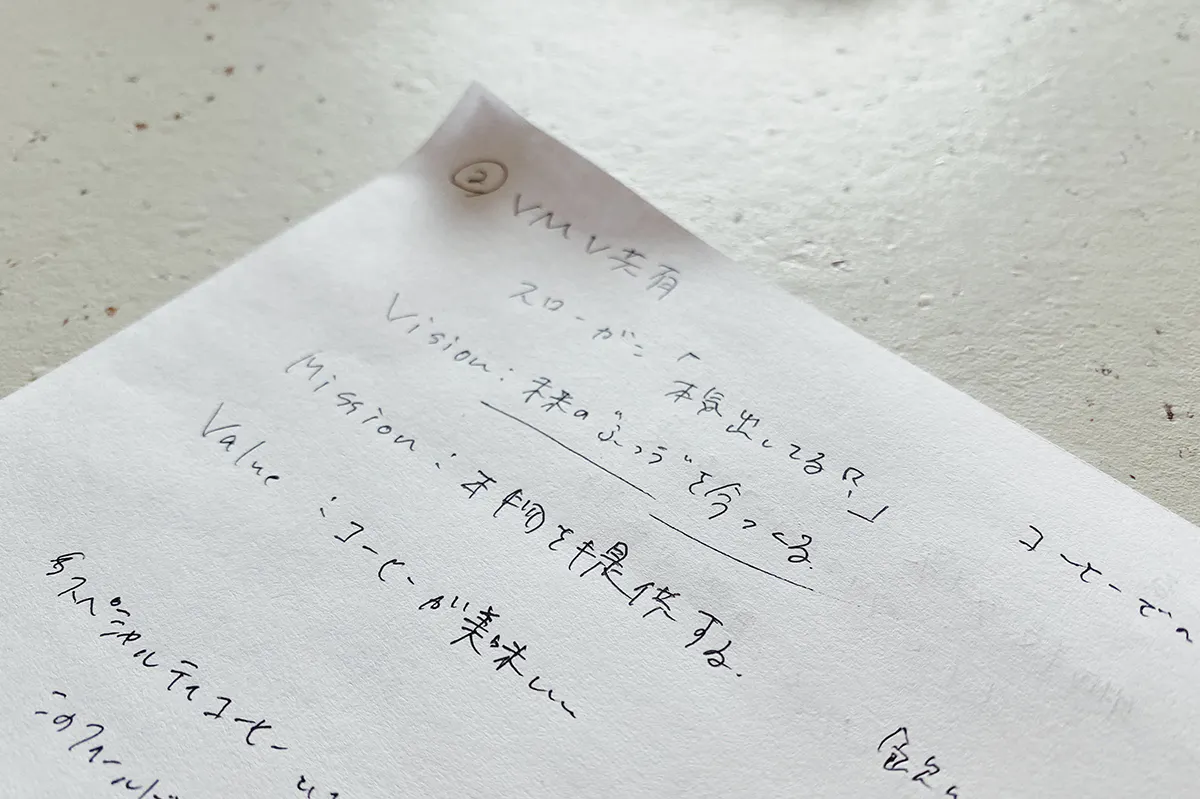 ② VMV共有
スローガン「本気出してる?」
Vision:未来の"ふつう"を今つくる.
Mission:本物を提供する.
Value:コーヒーが美味しい
スペシャルティコーヒー
このフィールド
コーヒーでの
飲